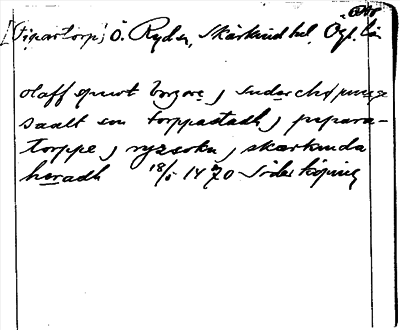 [Pipartorp] Ö. Ryd sn, Skärkind hd, Ög. län
olaff spwt borgare j suderchøpunge
saalt een torppastadh j pipara-
torppe j rydsokn j skærkinda
heradh 18/5 1470 Söderköping